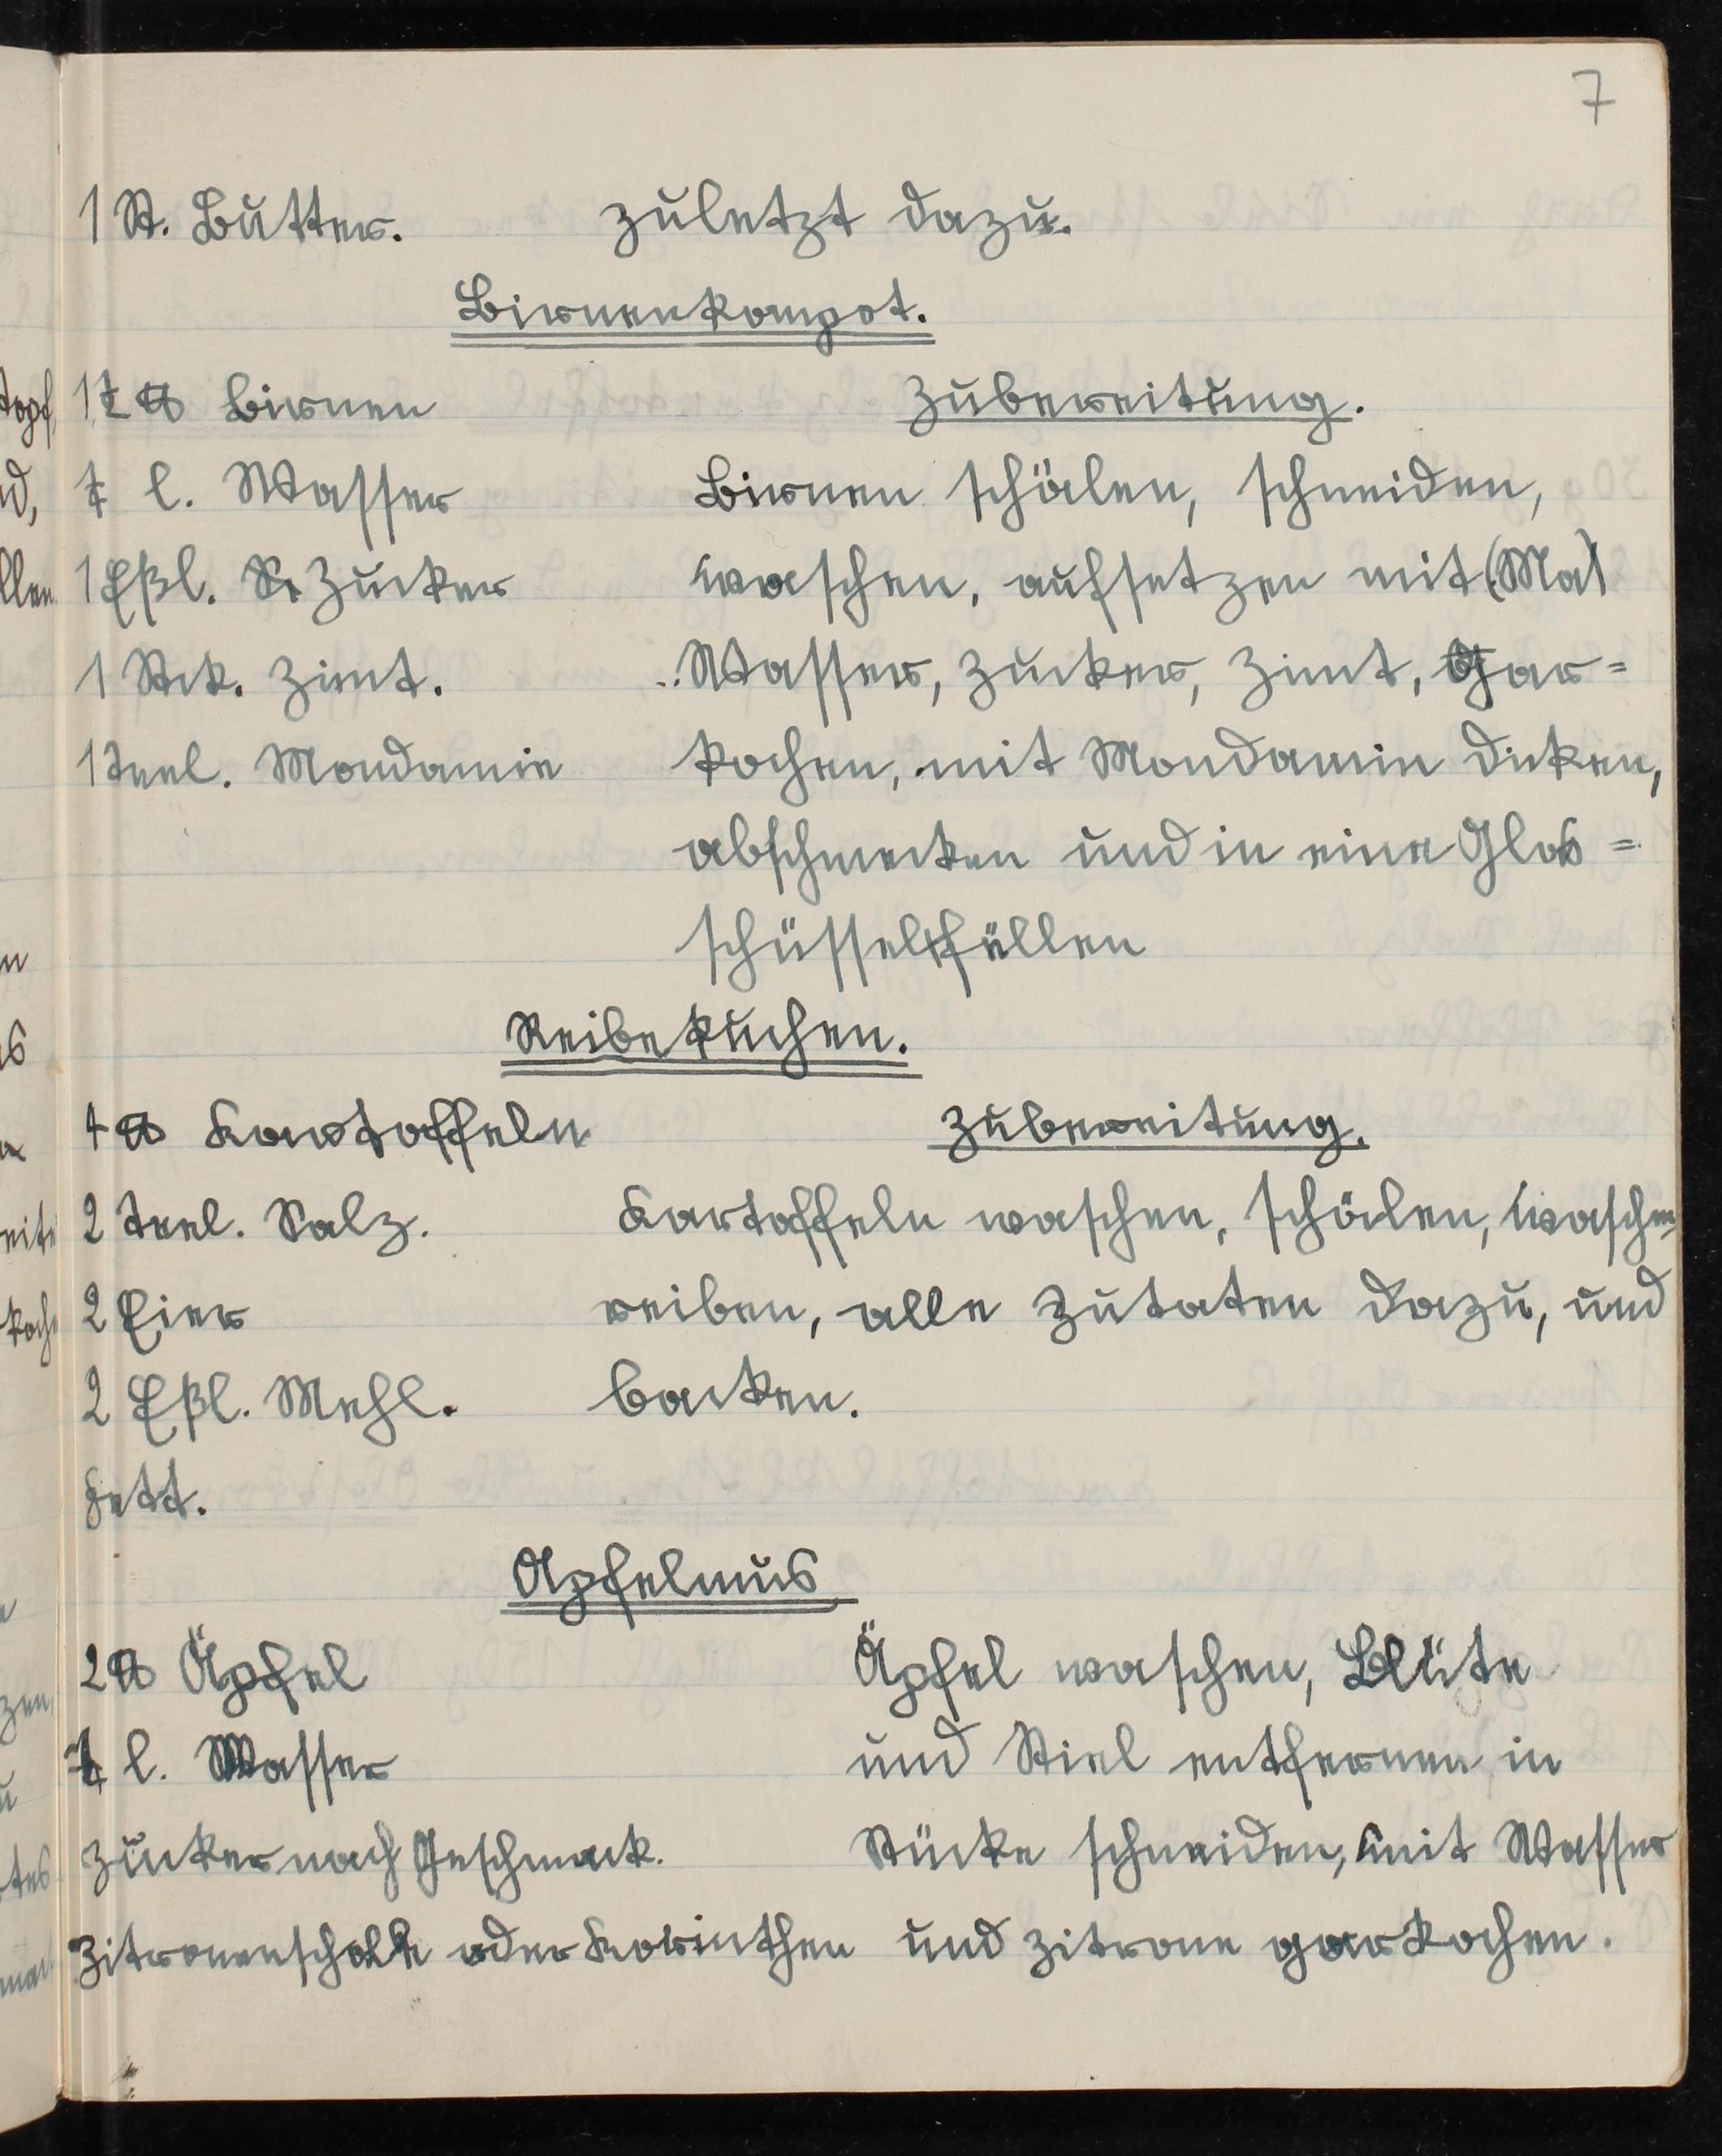 7
1 St. Butter. zuletzt dazu.
Birnenkompot.
1½ ℔ Birnen Zubereitung.
¼ l. Wasser Birnen schälen, schneiden,
1 Eßl. Zucker waschen, aufsetzen mit (Ma)
1 Stck. Zimt. Wasser, Zucker, Zimt, Gar=
1 Teel. Mondamin kochen, mit Mondamin dicken,
abschmecken und in eine Glas=
schüssel füllen
Reibekuchen.
4 ℔ Kartoffeln Zubereitung.
2 Teel. Salz. Kartoffeln waschen, schälen, waschen,
2 Eier reiben, alle Zutaten dazu, und
2 Eßl. Mehl. backen.
Fett.
Apfelmus
2 ℔ Äpfel Äpfel waschen, Blüte
¼ l. Wasser und Stiel entfernen, in
Zucker nach Geschmack. Stücke schneiden, mit Wasser
Zitronenschale oder Korinthen und Zitrone garkochen.